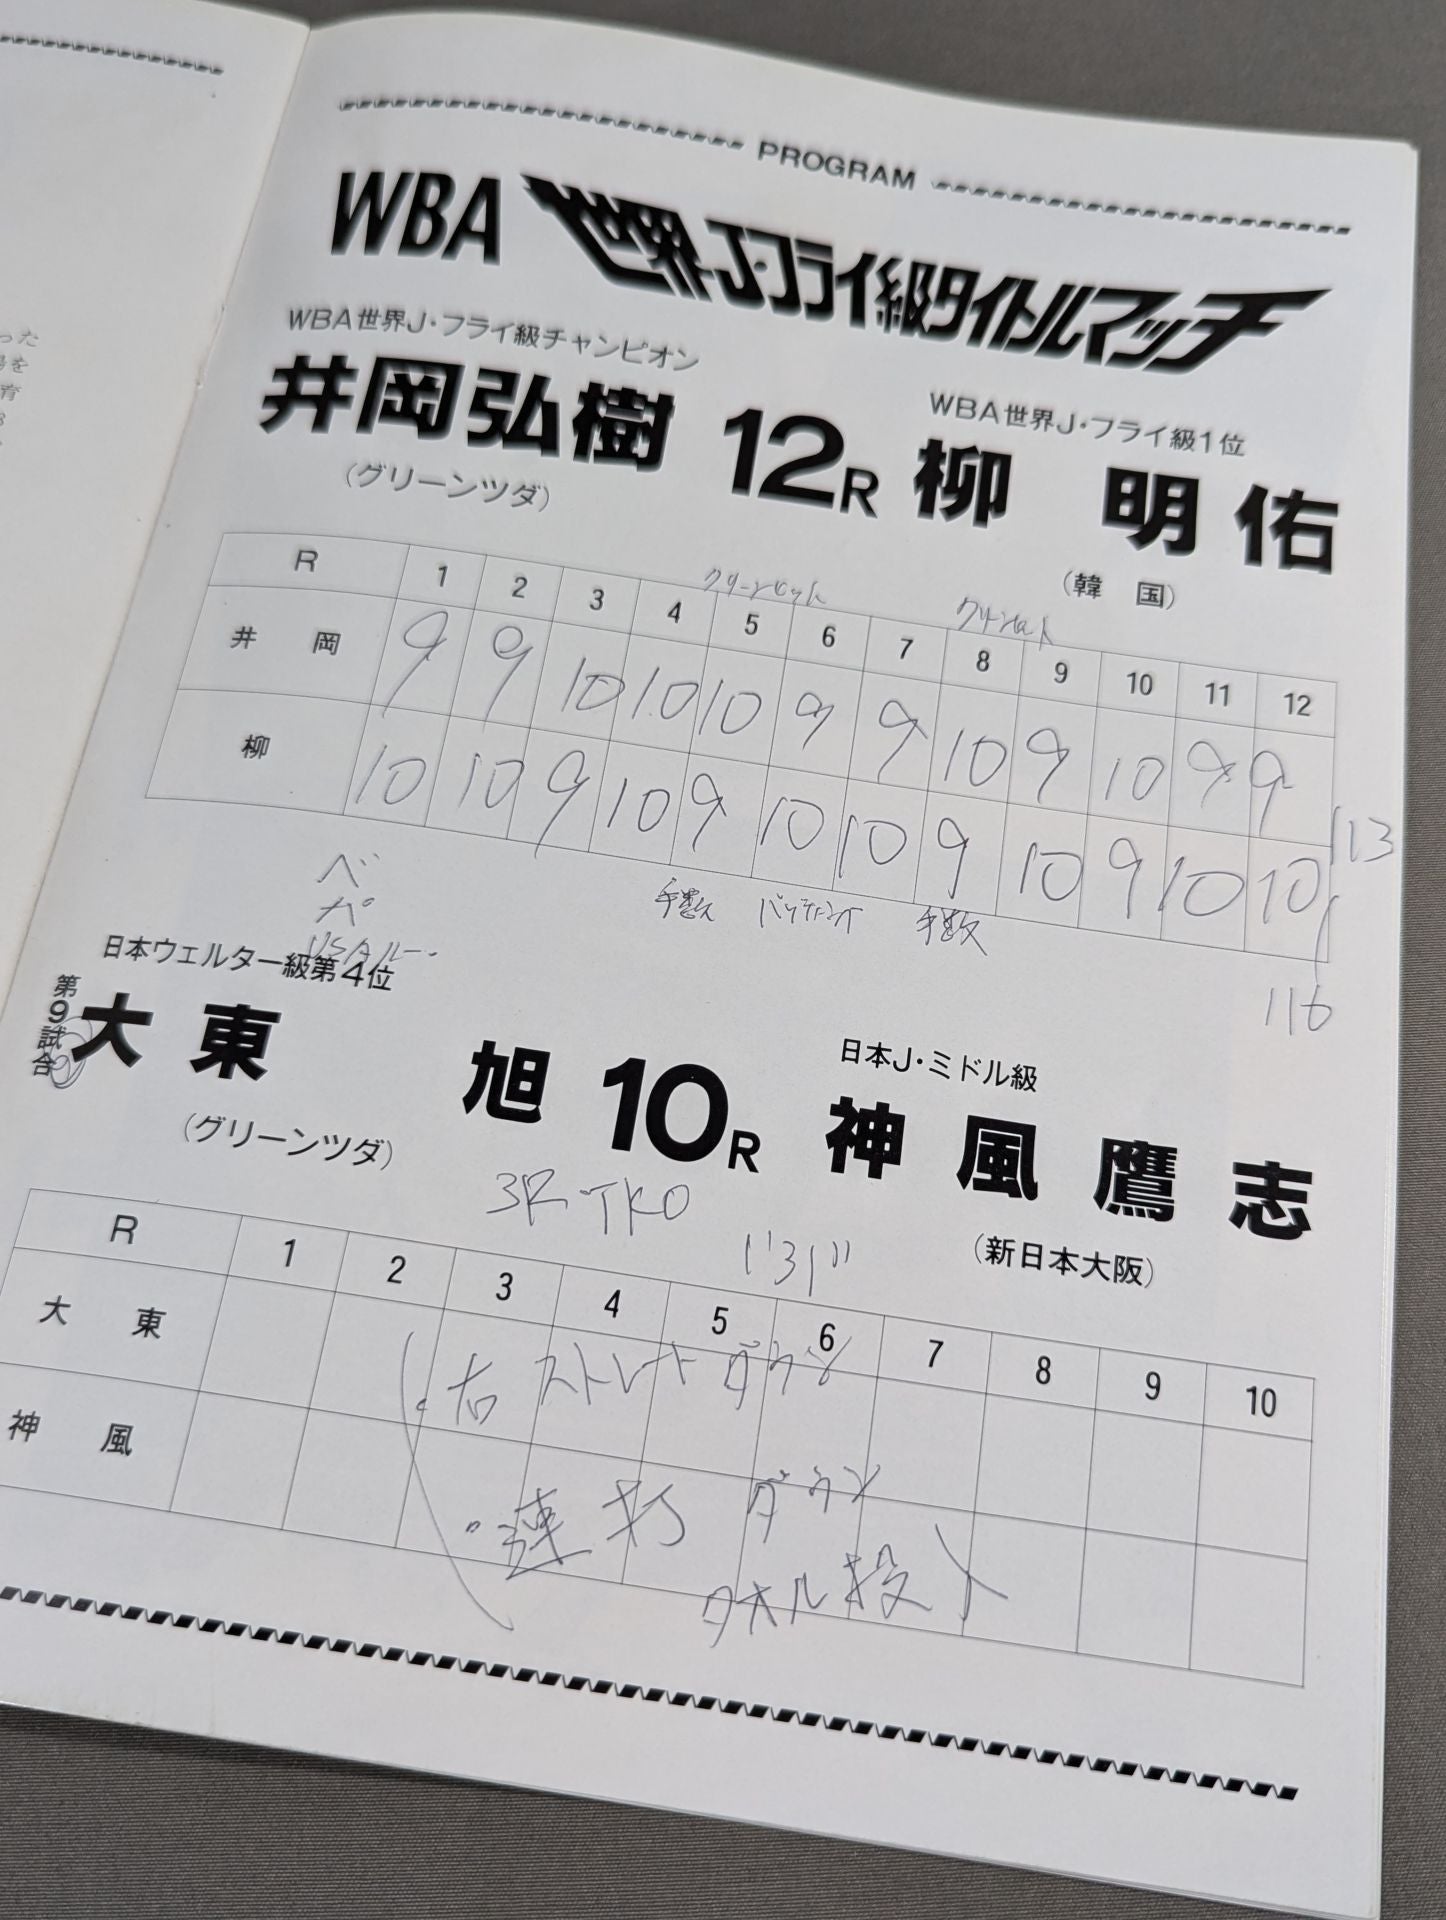 PROGRAM
WBA 世界J・フライ級タイトルマッチ
WBA世界J・フライ級チャンピオン
井岡弘樹 12R 柳 明 佑
WBA世界J・フライ級1位
(グリーンツダ)
(韓 国)
クリーンヒット
クリーンヒット
R 1 2 3 4 5 6 7 8 9 10 11 12
井 岡 9 9 10 10 10 9 9 10 9 10 9 9
柳 10 10 9 10 9 10 10 9 10 9 10 10
113
116
手数 バッティング 手数
日本ウェルター級第4位
第9試合
大 東 旭 10R 神 風 鷹 志
日本J・ミドル級
(グリーンツダ)
(新日本大阪)
3R TKO
1'31"
R 1 2 3 4 5 6 7 8 9 10
大 東
神 風
・右 ストレート ダウン
・連打 ダウン
タオル投入
った
を
育